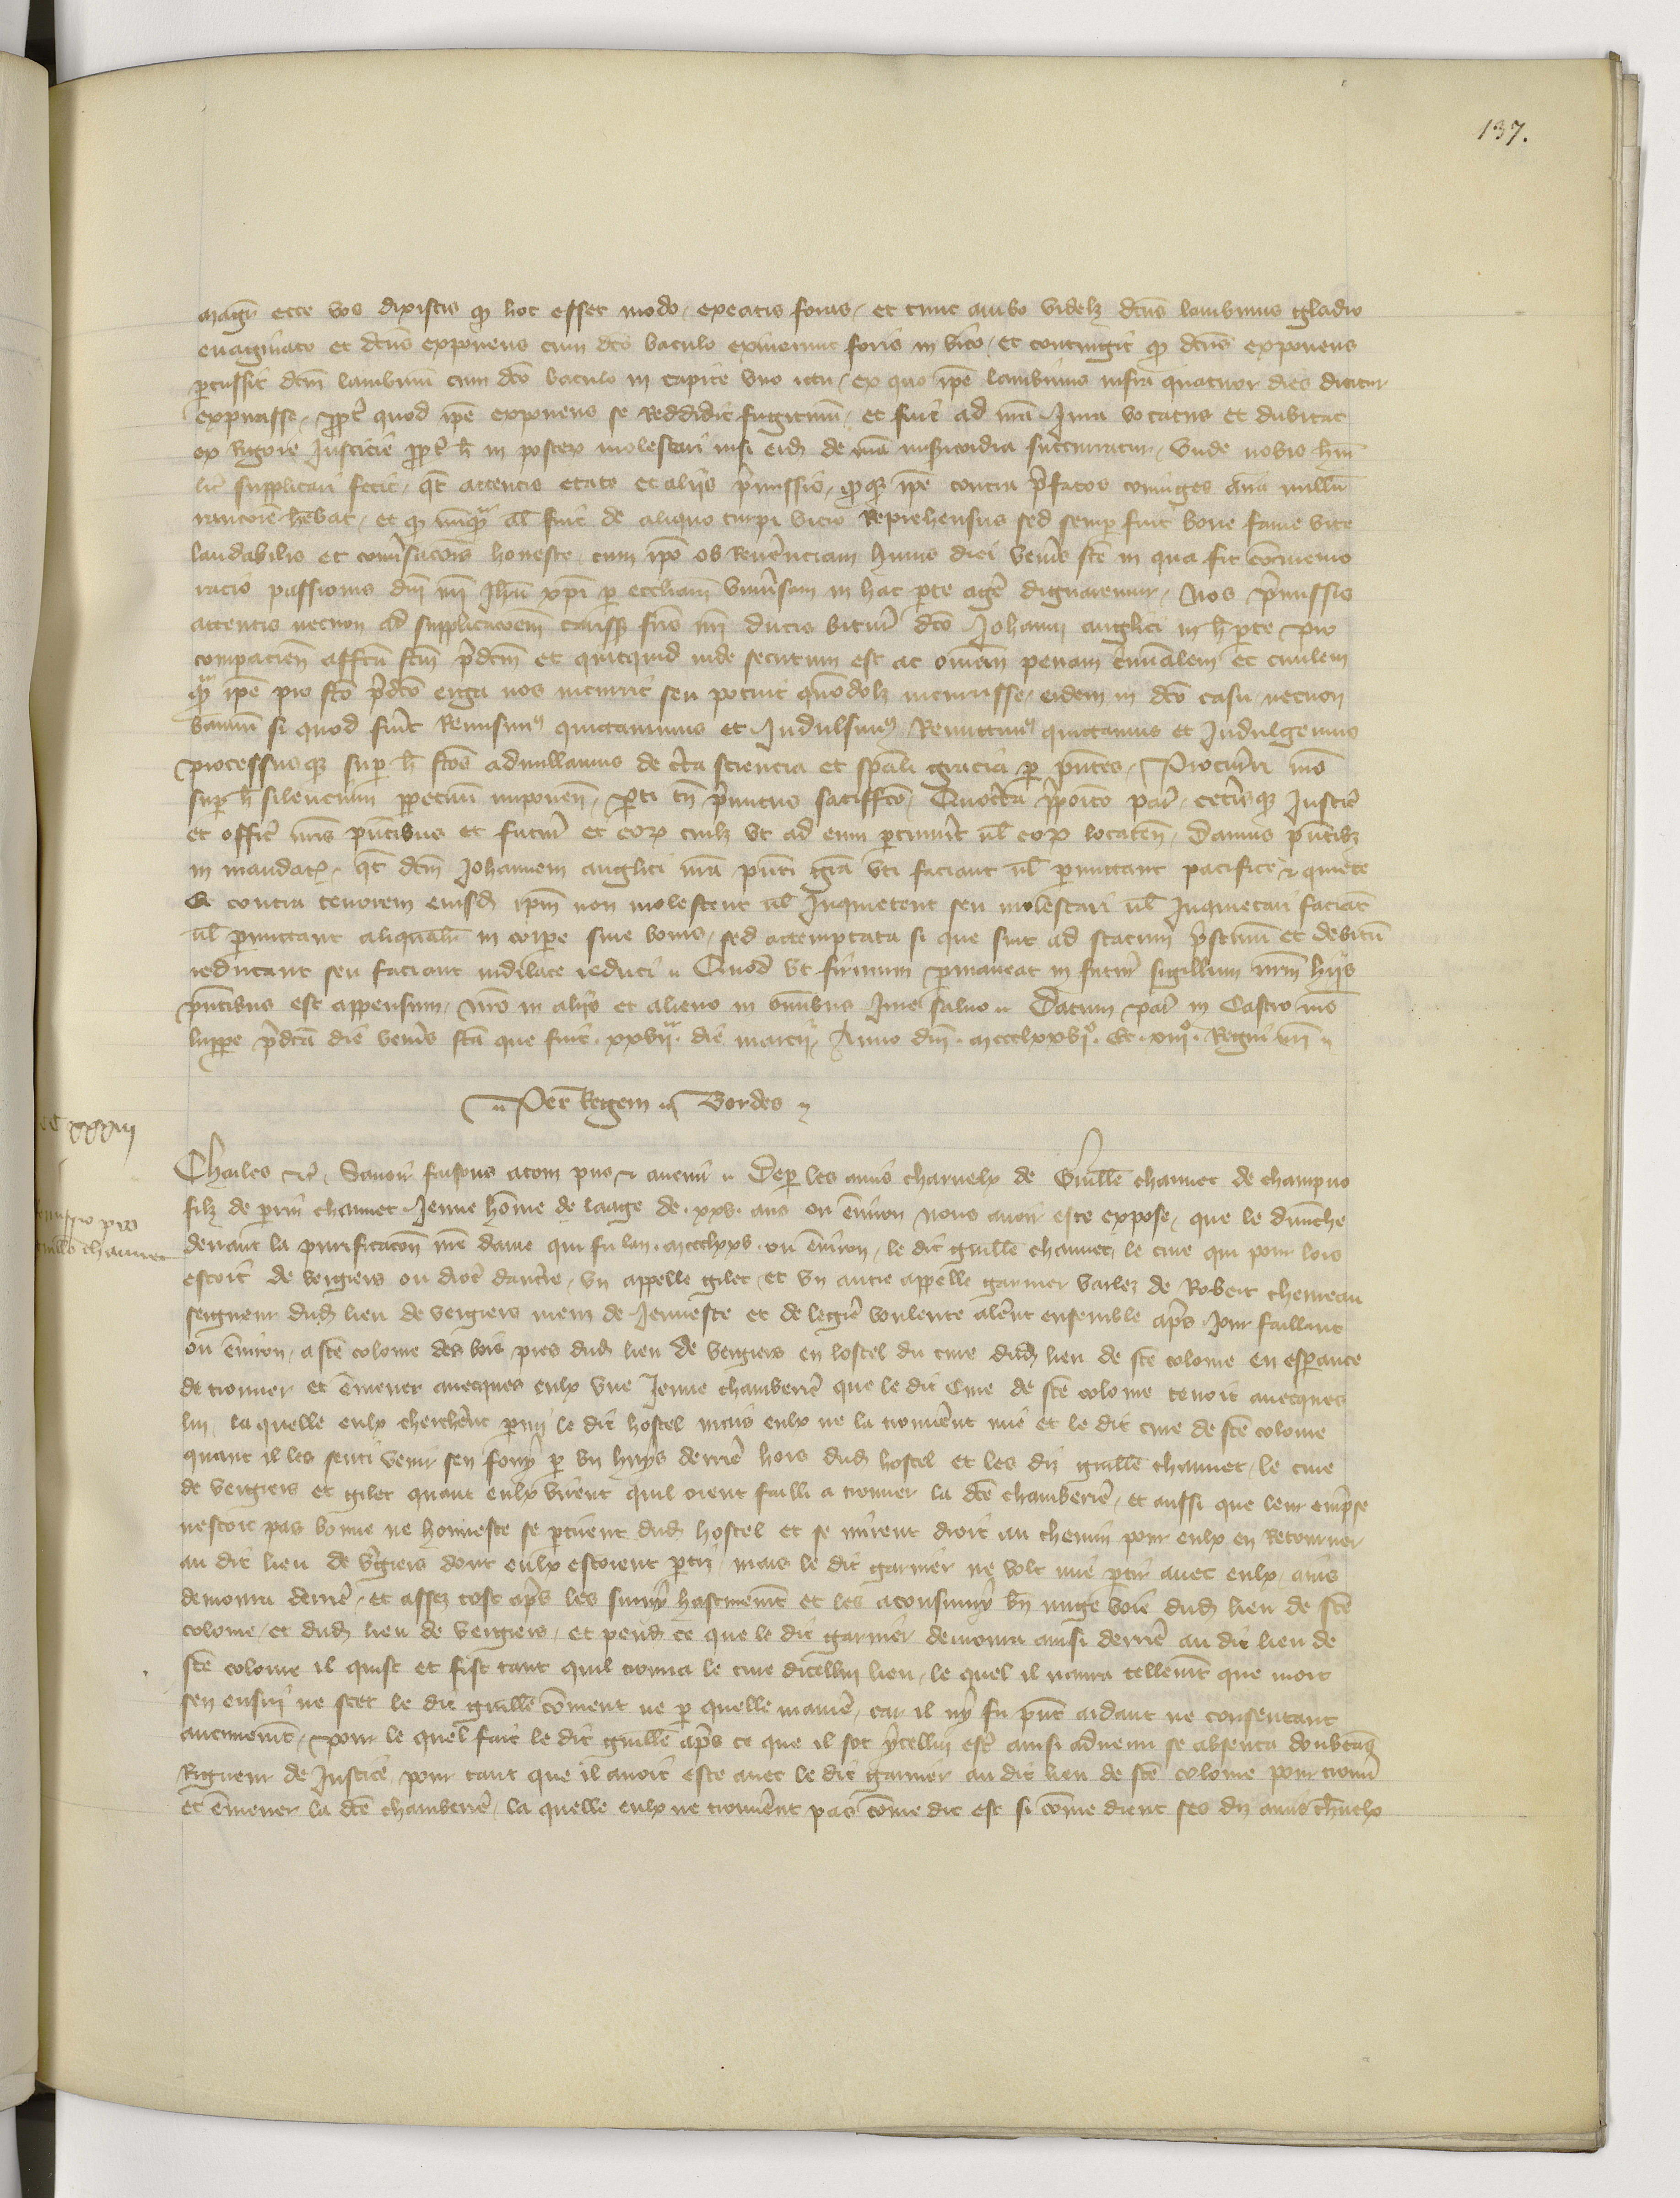 137.
magr ecce vos dixistis qd hoc esset modo, exeatis foras, et tunc ambo videlz dcus lambinus gladio
euaginato et dcus exponens cum dco baculo exiuerunt foris in vico, et contingit qd dcus exponens
percussit dcm lambinu cum dco baculo in capite vno ictu, ex quo ipe lambinus infra quatuor dies dicitur
expirasse, propt quod ipe exponens se reddidit fugitiuu, et fuit ad nra iura vocatus et dubitat
ex rigore Justicie propt h in poster molestari nisi eid de nra misericordia succurratur, vnde nobis hum
lit supplicari fecit, qt attentis etate et aliis pmissis, qdqz ipe contra pfatos coniuges ana nullu
rancore hebat, et qd nuqz al fuit de aliquo turpi vicio reprehensus sed semp fuit bone fame vite
laudabilis et couersacois honeste, cum ipo ob reuerenciam huius diei veneris sce in qua fit comemo
racio passionis dni nri Jhu xpi per eccliam vniuersam in hac parte agere dignaremur, Nos pmissis
attentis necnon ad supplicacoem cariss fris nri ducis bitur dco Johanni anglici in h parte pio
compacien affectu fcm pdcm et quicquid inde secutum est ac omem penam criminalem et ciuilem
qua ipe pro fco pdco erga nos incurrit seu potuit quodolz incurrisse, eidem in dco casu necnon
bannu si quod fuit remisimus quittauimus et Indulsimus remittimus quittamus et Indulgemus
processusqz sup h fcos adnullamus de certa sciencia et spali gracia per pntes, Procurori nro
super h silencium perpetuu imponen, parti tn pmitus satisffco, Quocirca pposito par, ceterisqz Justic
et offic nris pntibus et futur et eor cuilz vt ad eum ptinuit ul eor locaten, damus pntibz
in mandatis, qt dcm Johannem anglici nra pnti gra vti faciant ul permittant pacifice & quiete
Et contra tenorem eiusd ipm non molestent ul Inquietent seu molestari ul Inquietari faciat
ul permittant aliqualr in corpe siue bonis, sed attemptata si que sint ad statum pstinu et debitu
reducant seu faciant indilate reduci. Quod vt firmum permaneat in futur sigillum nrm hiis
pntibus est appensum, nro in aliis et alieno in omibus iure saluo. Datum par in Castro nro
lupre pdca die veneris sca que fuit .xxvii. die marcii, Anno dni .mccclxxvi. Et .xiii. Regni nri
Per Regem Bordes
CC xxxiii
Charles &c, Sauoir faisons atom pns & auenir. De par les amis charnelx de Guille chauuet de champuo
filz de perrin chauuet Jeune home de laage de .xxv. ans ou enuiron nous auoir este expose, que le dimenche
Remissio pro
Guille chauuet
deuant la purificacon nre dame qui fu lan .mccclxxv. ou enuiron, le dit guille chauuet, le cure qui pour lors
estoit de vergiers ou dioc daucre, vn appelle gilet, et vn autre appelle garnier varlez de Robert chenreau
seigneur dud lieu de vergiers meuz de Jeuneste et de legiere voulente alerent ensemble apres Jour faillant
ou enuiron, a ste colome des bois pres dud lieu de vergiers en lostel du cure dud lieu de ste colome en esperance
de trouuer et emener auecques eulx vne Jeune chamberiere que le dit Cure de ste colome tenoit auecques
lui, la quelle eulx cherchent parmi le dit hostel mais eulx ne la trouuerent mie et le dit cure de ste colome
quant il les senti venir sen fouy par vn huys derriere hors dud hostel et les diz guille chauuet, le cure
de vergiers et gilet quant eulx virent quil oient failli a trouuer la dce chamberiere, et aussi que leur emprse
nestoit pas bonne ne honneste se partirent dud hostel et se mirent droit au chemin pour eulx en retourner
au dit lieu de vergiers dont eulx estoient partiz, mais le dit garnier ne volt mie partir auec eulx, ains
demoura derriere, et assez tost apres les suiuy hastiuement et les aconsuiuy en mige voie dud lieu de ste
colome, et dud lieu de vergiers, et pend ce que le dit garnier demoura ainsi derriere au dit lieu de
ste colome il quist et fist tant quil trouua le cure dicellui lieu, le quel il naura tellement que mort
sen ensui ne scet le dit guille coment ne par quelle maniere, car il ny fu pnt aidant ne consentant
aucunement, Pour le quel fait le dit guille apres ce que il sot ycellui estre ainsi aduenu se absenta doubtans
Rigueur de Justice, pour tant que il auoit este auec le dit garnier au dit lieu de ste colome pour trouuer
et emener la dce chamberiere, la quelle eulx ne trouuerent pas come dit est si come dient ses diz amis charnelx